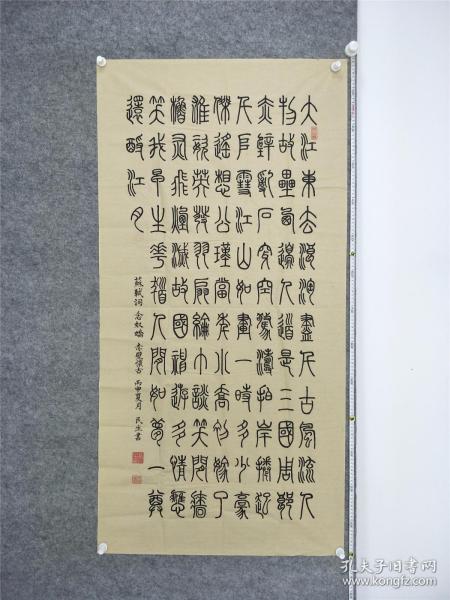 大江東去浪淘盡千古風流人
物故壘西邊人道是三國周郎
赤壁亂石穿空驚濤拍岸捲起
千堆雪江山如畫一時多少豪
傑遙想公瑾當年小喬初嫁了
雄姿英發羽扇綸巾談笑間檣
櫓灰飛煙滅故國神遊多情應
笑我早生華髮人間如夢一尊
還酹江月
蘇軾詞 念奴嬌 赤壁懷古 丙申夏月 民生書
孔夫子旧书网
www.kongfz.com